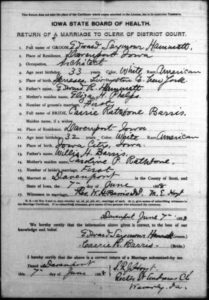 IOWA STATE BOARD OF HEALTH.
RETURN OF A MARRIAGE TO CLERK OF DISTRICT COURT.
1. Full name of GROOM, Edward Seymour Hammatt
2. Place of Residence, Davenport Iowa
3. Occupation, Architect
4. Age next birthday, 33 years. Color, White Race, American
5. Place of Birth, Geneseo, Livingston Co New York
6. Father's name, Edward R. Hammatt
7. Mother's name, Eliza H. Phelps
8. Number of groom's marriage, First
9. Full name of BRIDE, Carrie Rathbone Barris
Maiden name, if a widow,
10. Place of Residence, Davenport Iowa
11. Age next birthday, 32 years. Color, White Race, American
12. Place of Birth, Iowa City, Iowa
13. Father's name, Willis H. Barris
14. Mother's name, Caroline P. Rathbone
15. Number of bride's marriage, First
16. Married at Davenport in the County of Scott, and
State of Iowa, the 7th day of June 188
17. Witnesses to marriage,
Davenport June 7th 188
We hereby certify that the information above given is correct, to the best of our
knowledge and belief.
Edward Seymour Hammatt (Groom.)
Carrie R. Barris (Bride.)
I hereby certify that the above is a correct return of a Marriage solemnized by me.
Dated at Davenport
this 7th day of June 188
Waverly Ia.